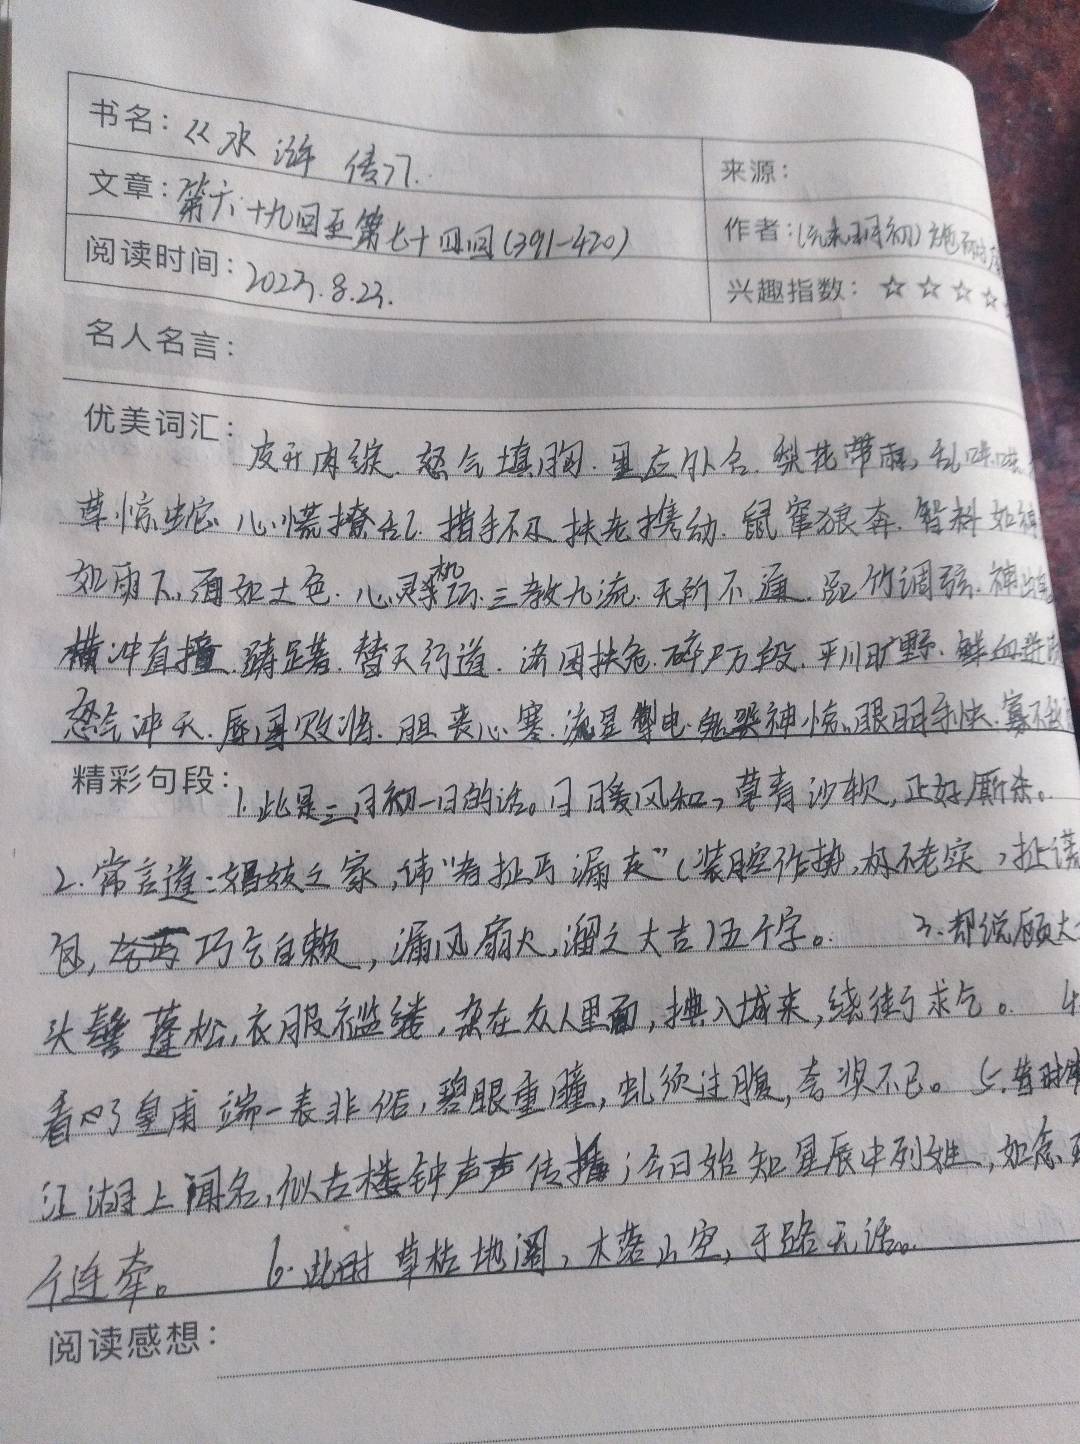 书名：《水浒传》.
来源：
文章：第六十九回至第七十四回(391-420)
作者：(元末明初)施耐庵
阅读时间：2023.8.23.
兴趣指数：☆☆☆☆
名人名言：
优美词汇：
皮开肉绽.怒气填胸.里应外合.梨花带雨,乱
草惊蛇 心慌撩乱.措手不及 扶老携幼.鼠窜狼奔.智料如神
如雨下,面如土色.心灵机巧.三教九流.无所不通.品竹调弦.神出
横冲直撞.踌足蓍.替天行道.济困扶危.碎尸万段.平川旷野.鲜血迸
怒气冲天.辱国败将.胆丧心寒.流星掣电.鬼哭神惊.眼明手快.寡不敌
精彩句段：
1.此是三月初一日的话。日暖风和,草青沙软,正好厮杀。
2.常言道:娼妓之家,讳“者扯丐漏走”(装腔作势,极不老实,扯谎
包,巧乞白赖,漏风扇火,溜之大吉)五个字。 3.却说顾大
头髻蓬松,衣服褴缕,杂在众人里面,捵入城来,绕街求乞。 4.
看了皇甫端一表非俗,碧眼重瞳,虬须过腹,夸奖不已。 5.昔时
江湖上闻名,似古楼钟声声传播;今日始知星辰中列姓,如念
个连牵。 6.此时草枯地阔,木落山空,于路无话。
阅读感想：